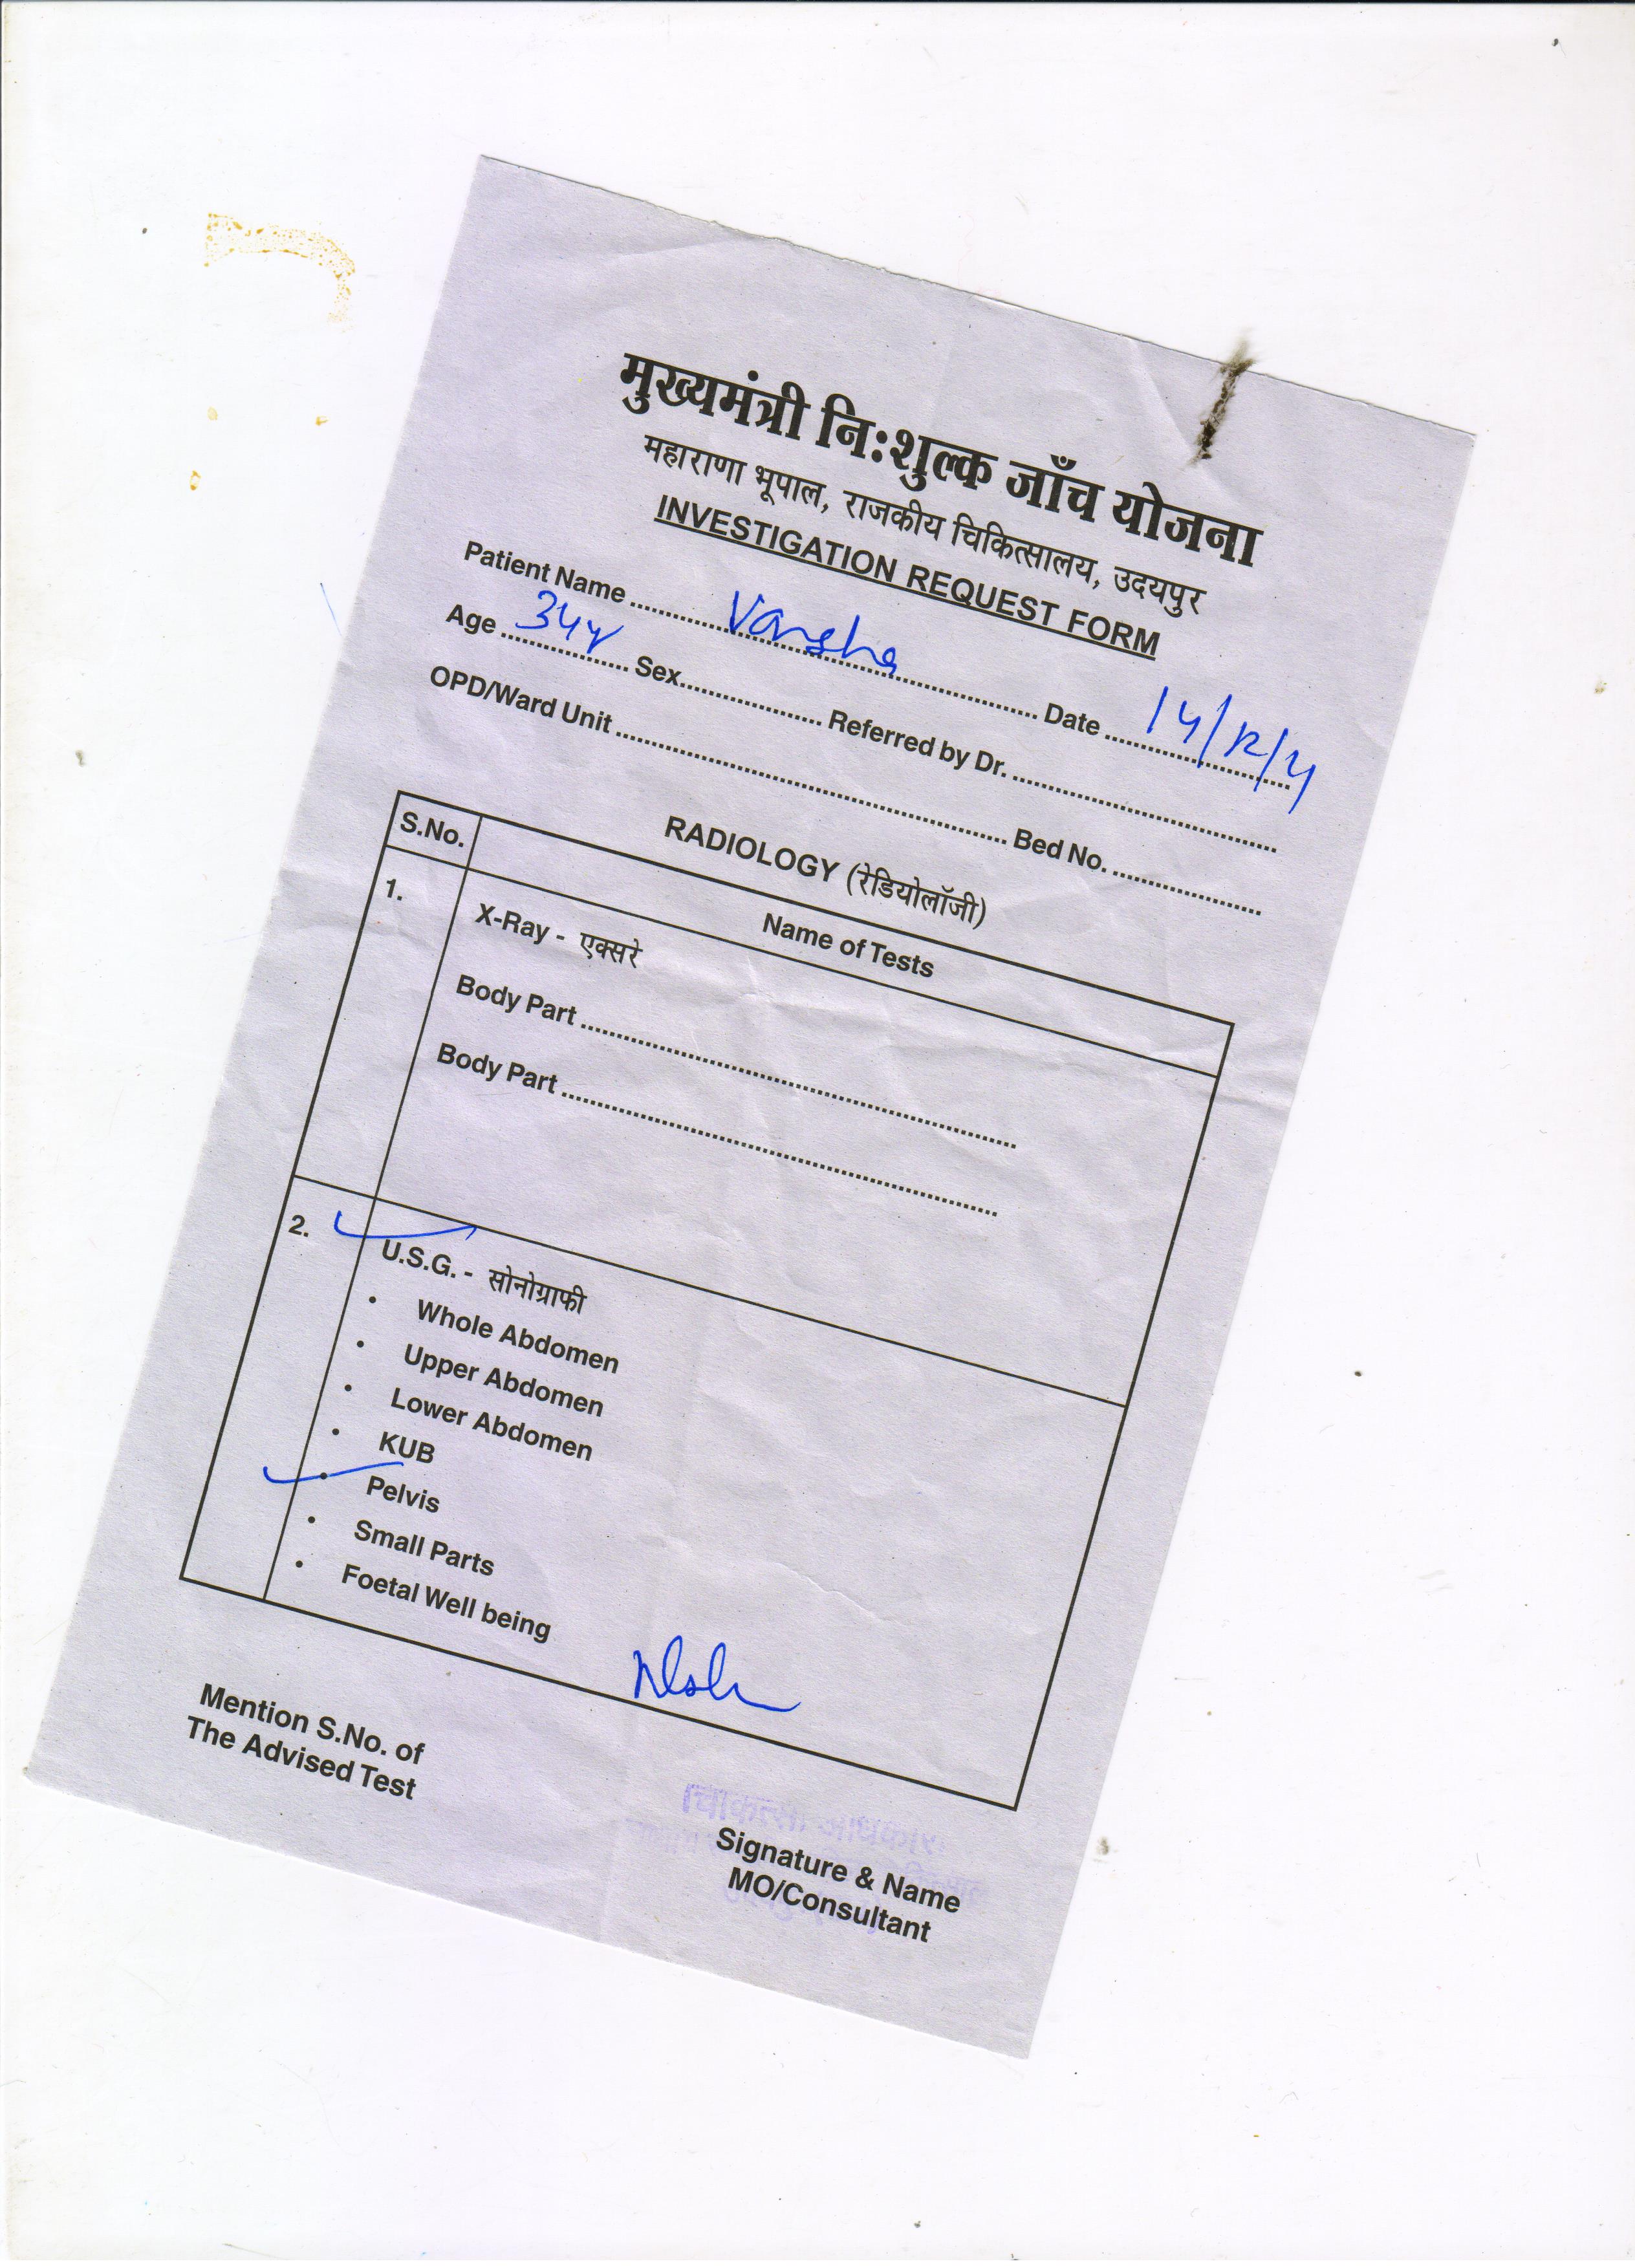 मुख्यमंत्री नि:शुल्क जाँच योजना
महाराणा भूपाल, राजकीय चिकित्सालय, उदयपुर
INVESTIGATION REQUEST FORM
Patient Name Varsha Date 14/12/
Age 34y Sex Referred by Dr.
OPD/Ward Unit Bed No.
RADIOLOGY (रेडियोलॉजी)
S.No. Name of Tests
1. X-Ray - एक्सरे
Body Part
Body Part
2. U.S.G. - सोनोग्राफी
• Whole Abdomen
• Upper Abdomen
• Lower Abdomen
• KUB
• Pelvis
• Small Parts
• Foetal Well being
Mention S.No. of
The Advised Test
Signature & Name
MO/Consultant